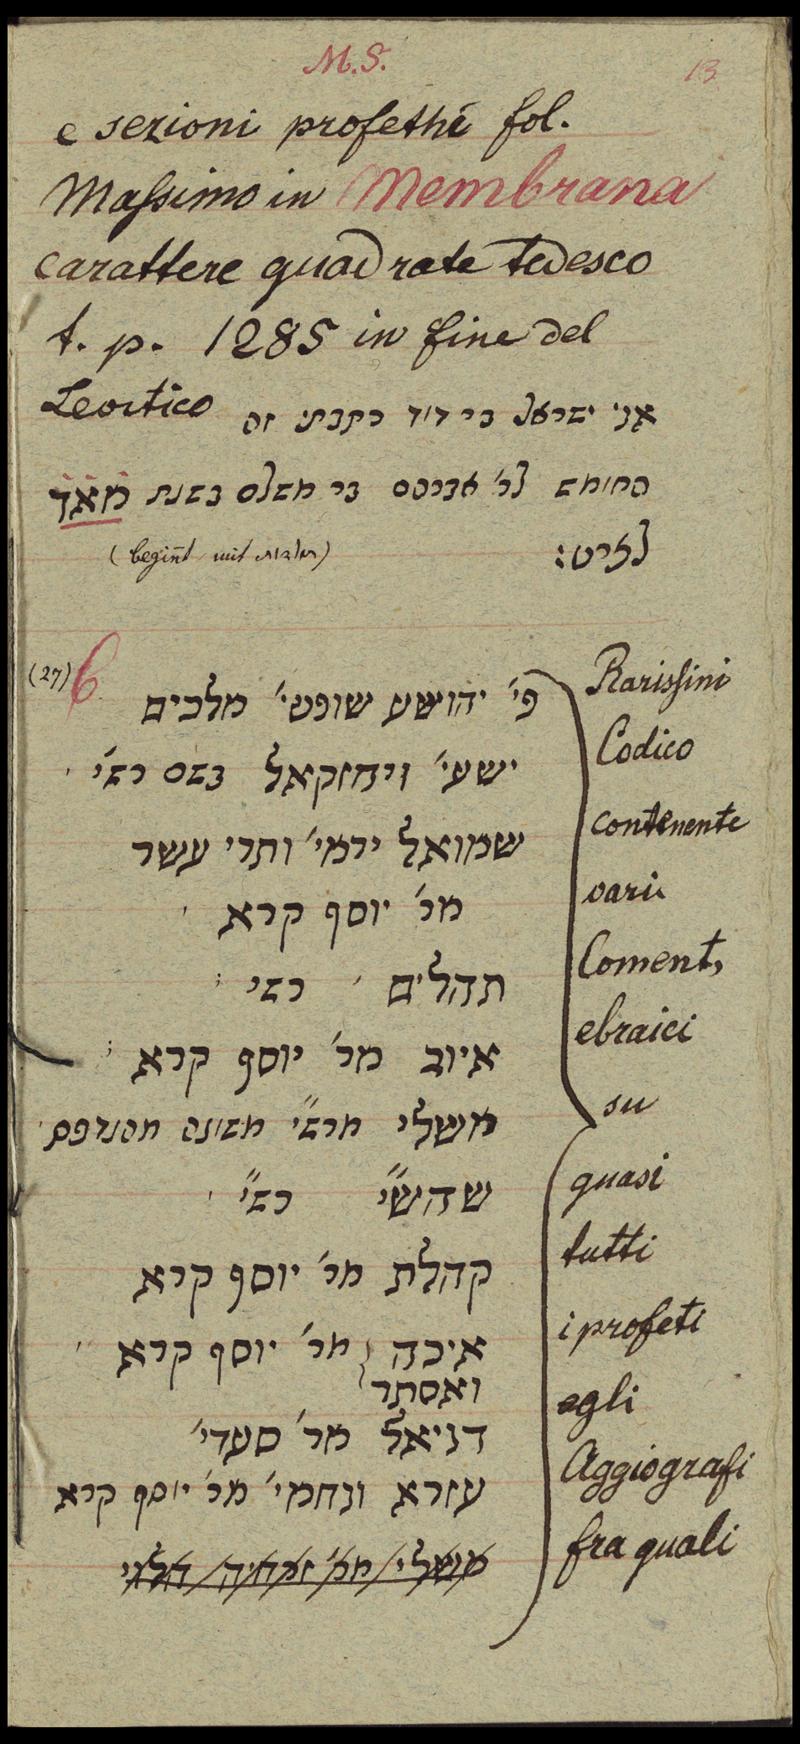 M.S.
13
e sezioni profethé fol.
Massimo in Membrana
carattere quadrate tedesco
t. p. 1285 in fine del
Levitico אני ישראל בר דוד כתבתי זה
החומש לר' אברהם בר משלם בשנת מאד
לפרט:
(beginnt mit)
(27) 6
פי' יהושע שופטי' מלכים
ישעי' ויחזקאל בשם רש"י
שמואל ירמי' ותרי עשר
מר' יוסף קרא
תהלים רש"י
איוב מר' יוסף קרא
משלי מרש"י משונה מהנדפס
שהש"י רש"י
קהלת מר' יוסף קרא
איכה מר' יוסף קרא
ואסתר
דניאל מר' סעדי'
עזרא ונחמי' מר' יוסף קרא
Rarissini
Codico
contenente
varii
Coment,
ebraici
su
quasi
tutti
i profeti
egli
Aggiografi
fra quali